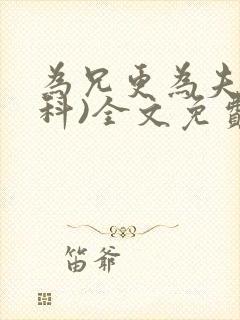 為兄更為夫
科)全文免費
笛爺